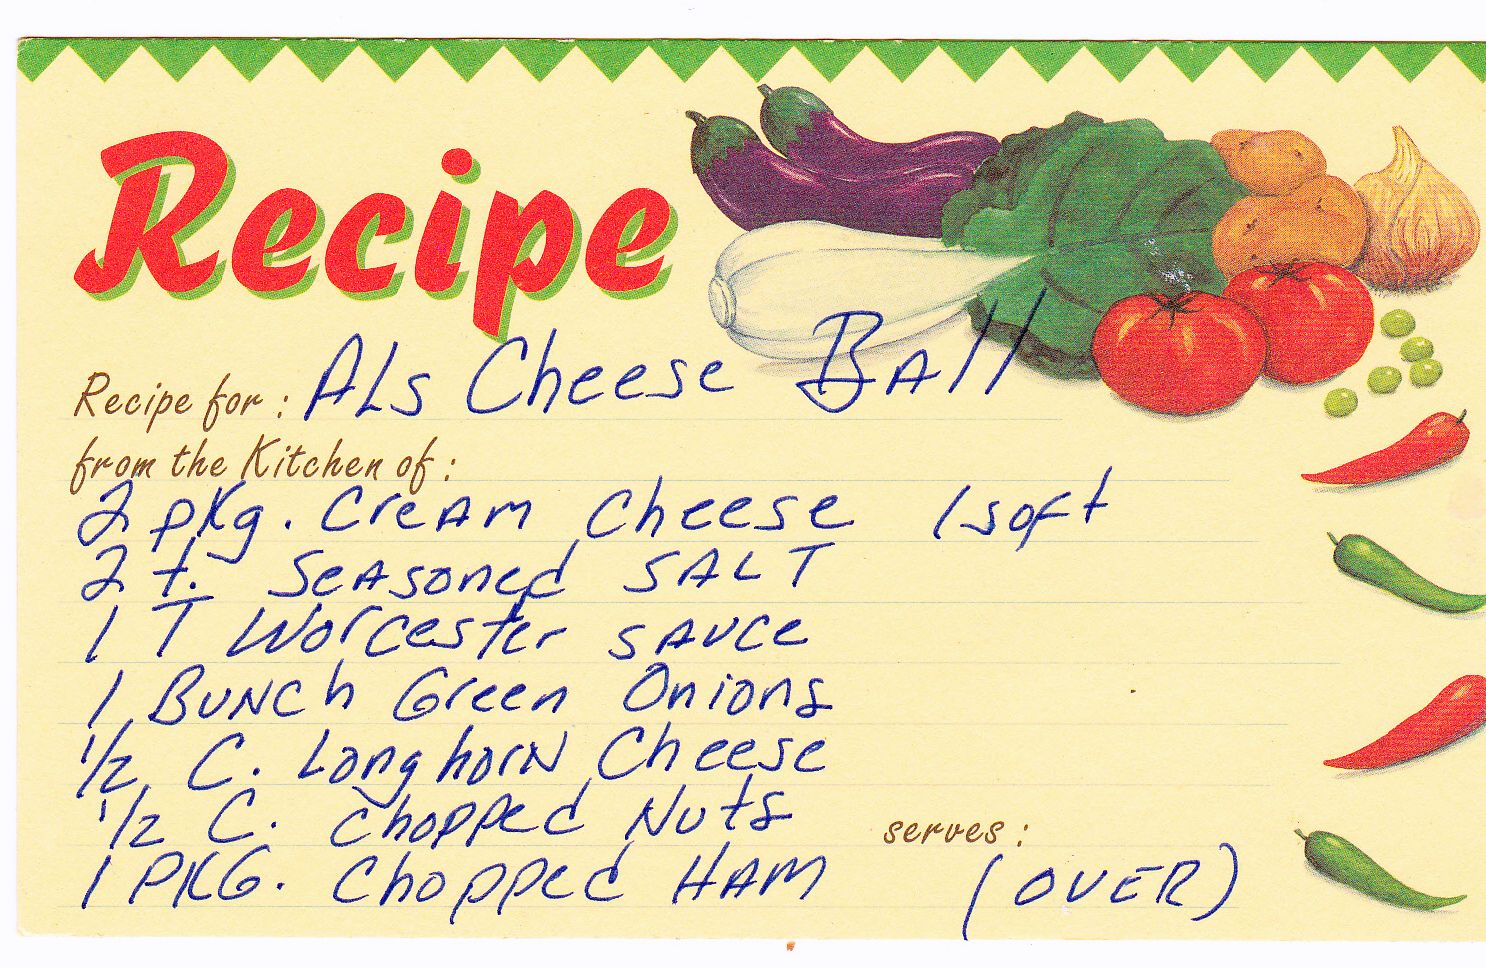 Recipe
Recipe for: ALs Cheese BAll
from the Kitchen of:
2 pKg. CreAm Cheese (soft
2 t. SeAsoned SALT
1 T Worcester SAUCe
1 BUNCh Green Onions
1/2 C. LonghorN Cheese
1/2 C. Chopped Nuts
serves:
1 PKG. Chopped HAM (OVER)